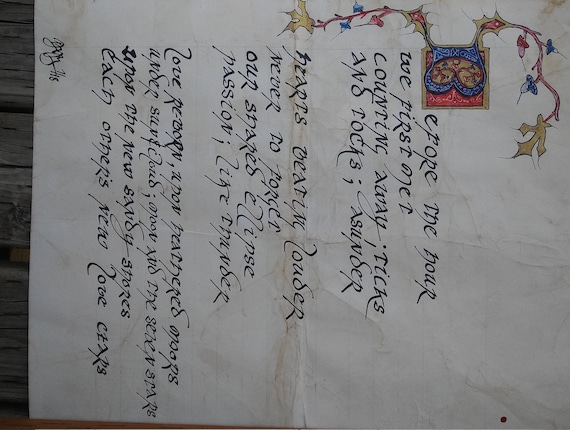 Before the hour
we first met
counting away ; ticks
and tocks ; asunder
hearts beating louder
never to forget
our shared eclipse
passion ; like thunder
love reborn upon feathered moors
under sun clouds, moon and the seven stars
upon the new sandy shores
each others new love